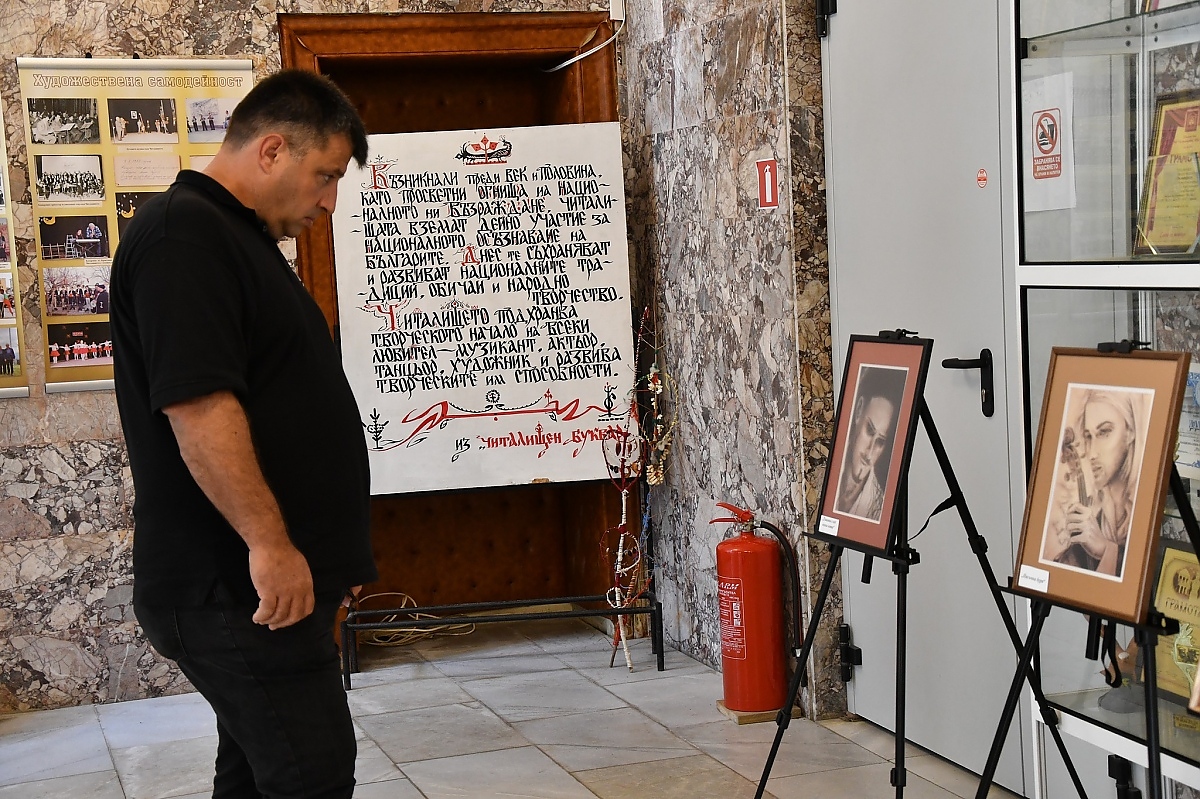 Художествена самодейност
Възникнали преди век и половина,
като просветни огнища на нацио-
налното ни Възраждане, читали-
щата вземат дейно участие за
националното осъзнаване на
българите. Днес те съхраняват
и развиват националните тра-
диции, обичаи и народно
творчество.
Читалището подхранва
творческото начало на всеки
любител – музикант, актьор,
танцьор, художник и развива
творческите им способности.
из „Читалищен буквар
ЗАБРАНЯВА СЕ